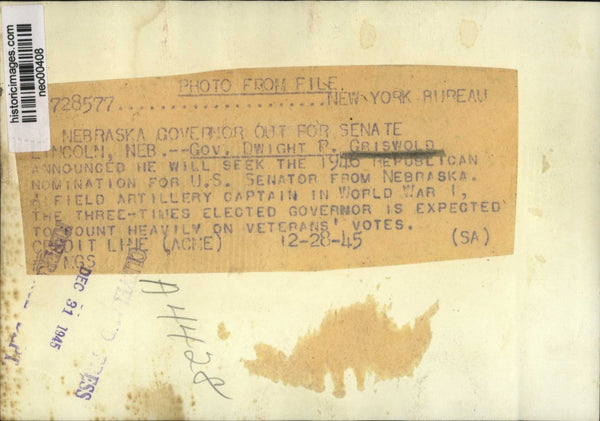 historicimages.com
neo00408
PHOTO FROM FILE
728577......................NEW YORK BUREAU
NEBRASKA GOVERNOR OUT FOR SENATE
LINCOLN, NEB.--GOV. DWIGHT P. GRISWOLD
ANNOUNCED HE WILL SEEK THE 1946 REPUBLICAN
NOMINATION FOR U.S. SENATOR FROM NEBRASKA.
A FIELD ARTILLERY CAPTAIN IN WORLD WAR I,
THE THREE-TIMES ELECTED GOVERNOR IS EXPECTED
TO COUNT HEAVILY ON VETERANS' VOTES.
CREDIT LINE (ACME) 12-28-45 (SA)
MGS
DEC 31 1945
PRESS
A4428